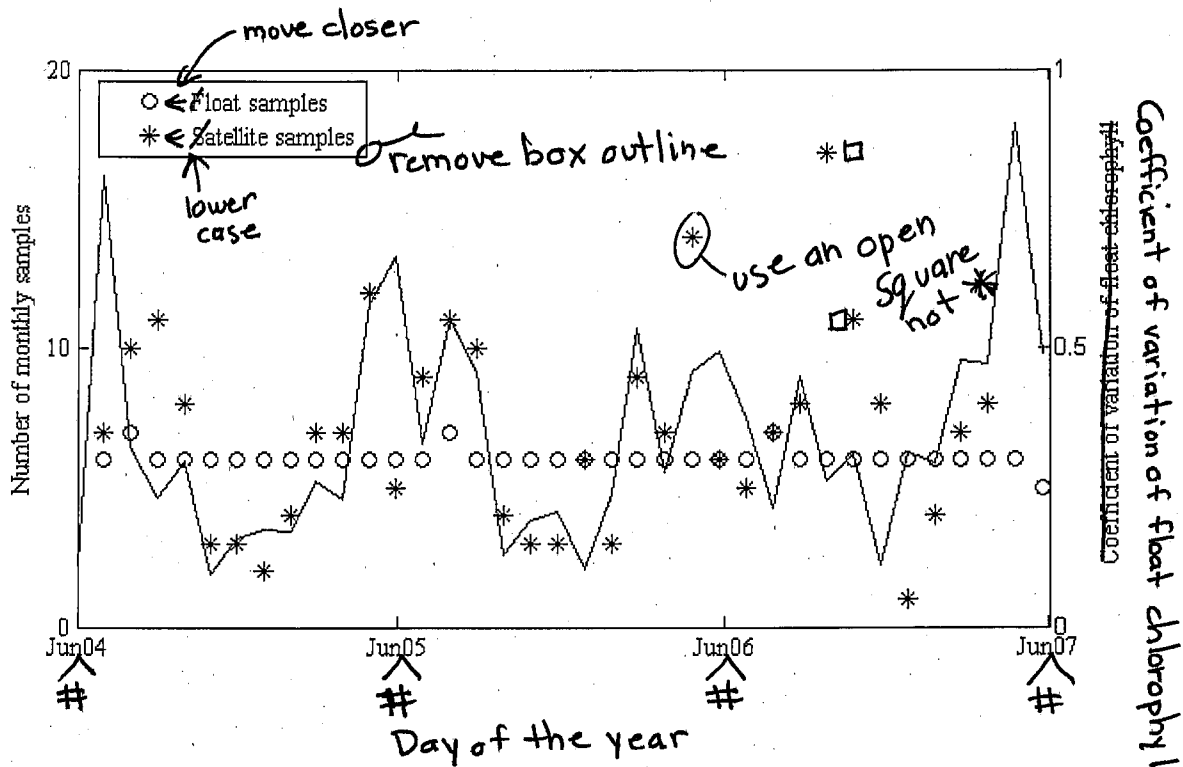 move closer
20
1
Float samples
Satellite samples
remove box outline
lower
case
use an open
square
not *
Number of monthly samples
Coefficient of variation of float chlorophyll
Coefficient of variation of float chlorophyl
10
0.5
0
0
Jun04
Jun05
Jun06
Jun07
#
#
#
#
Day of the year